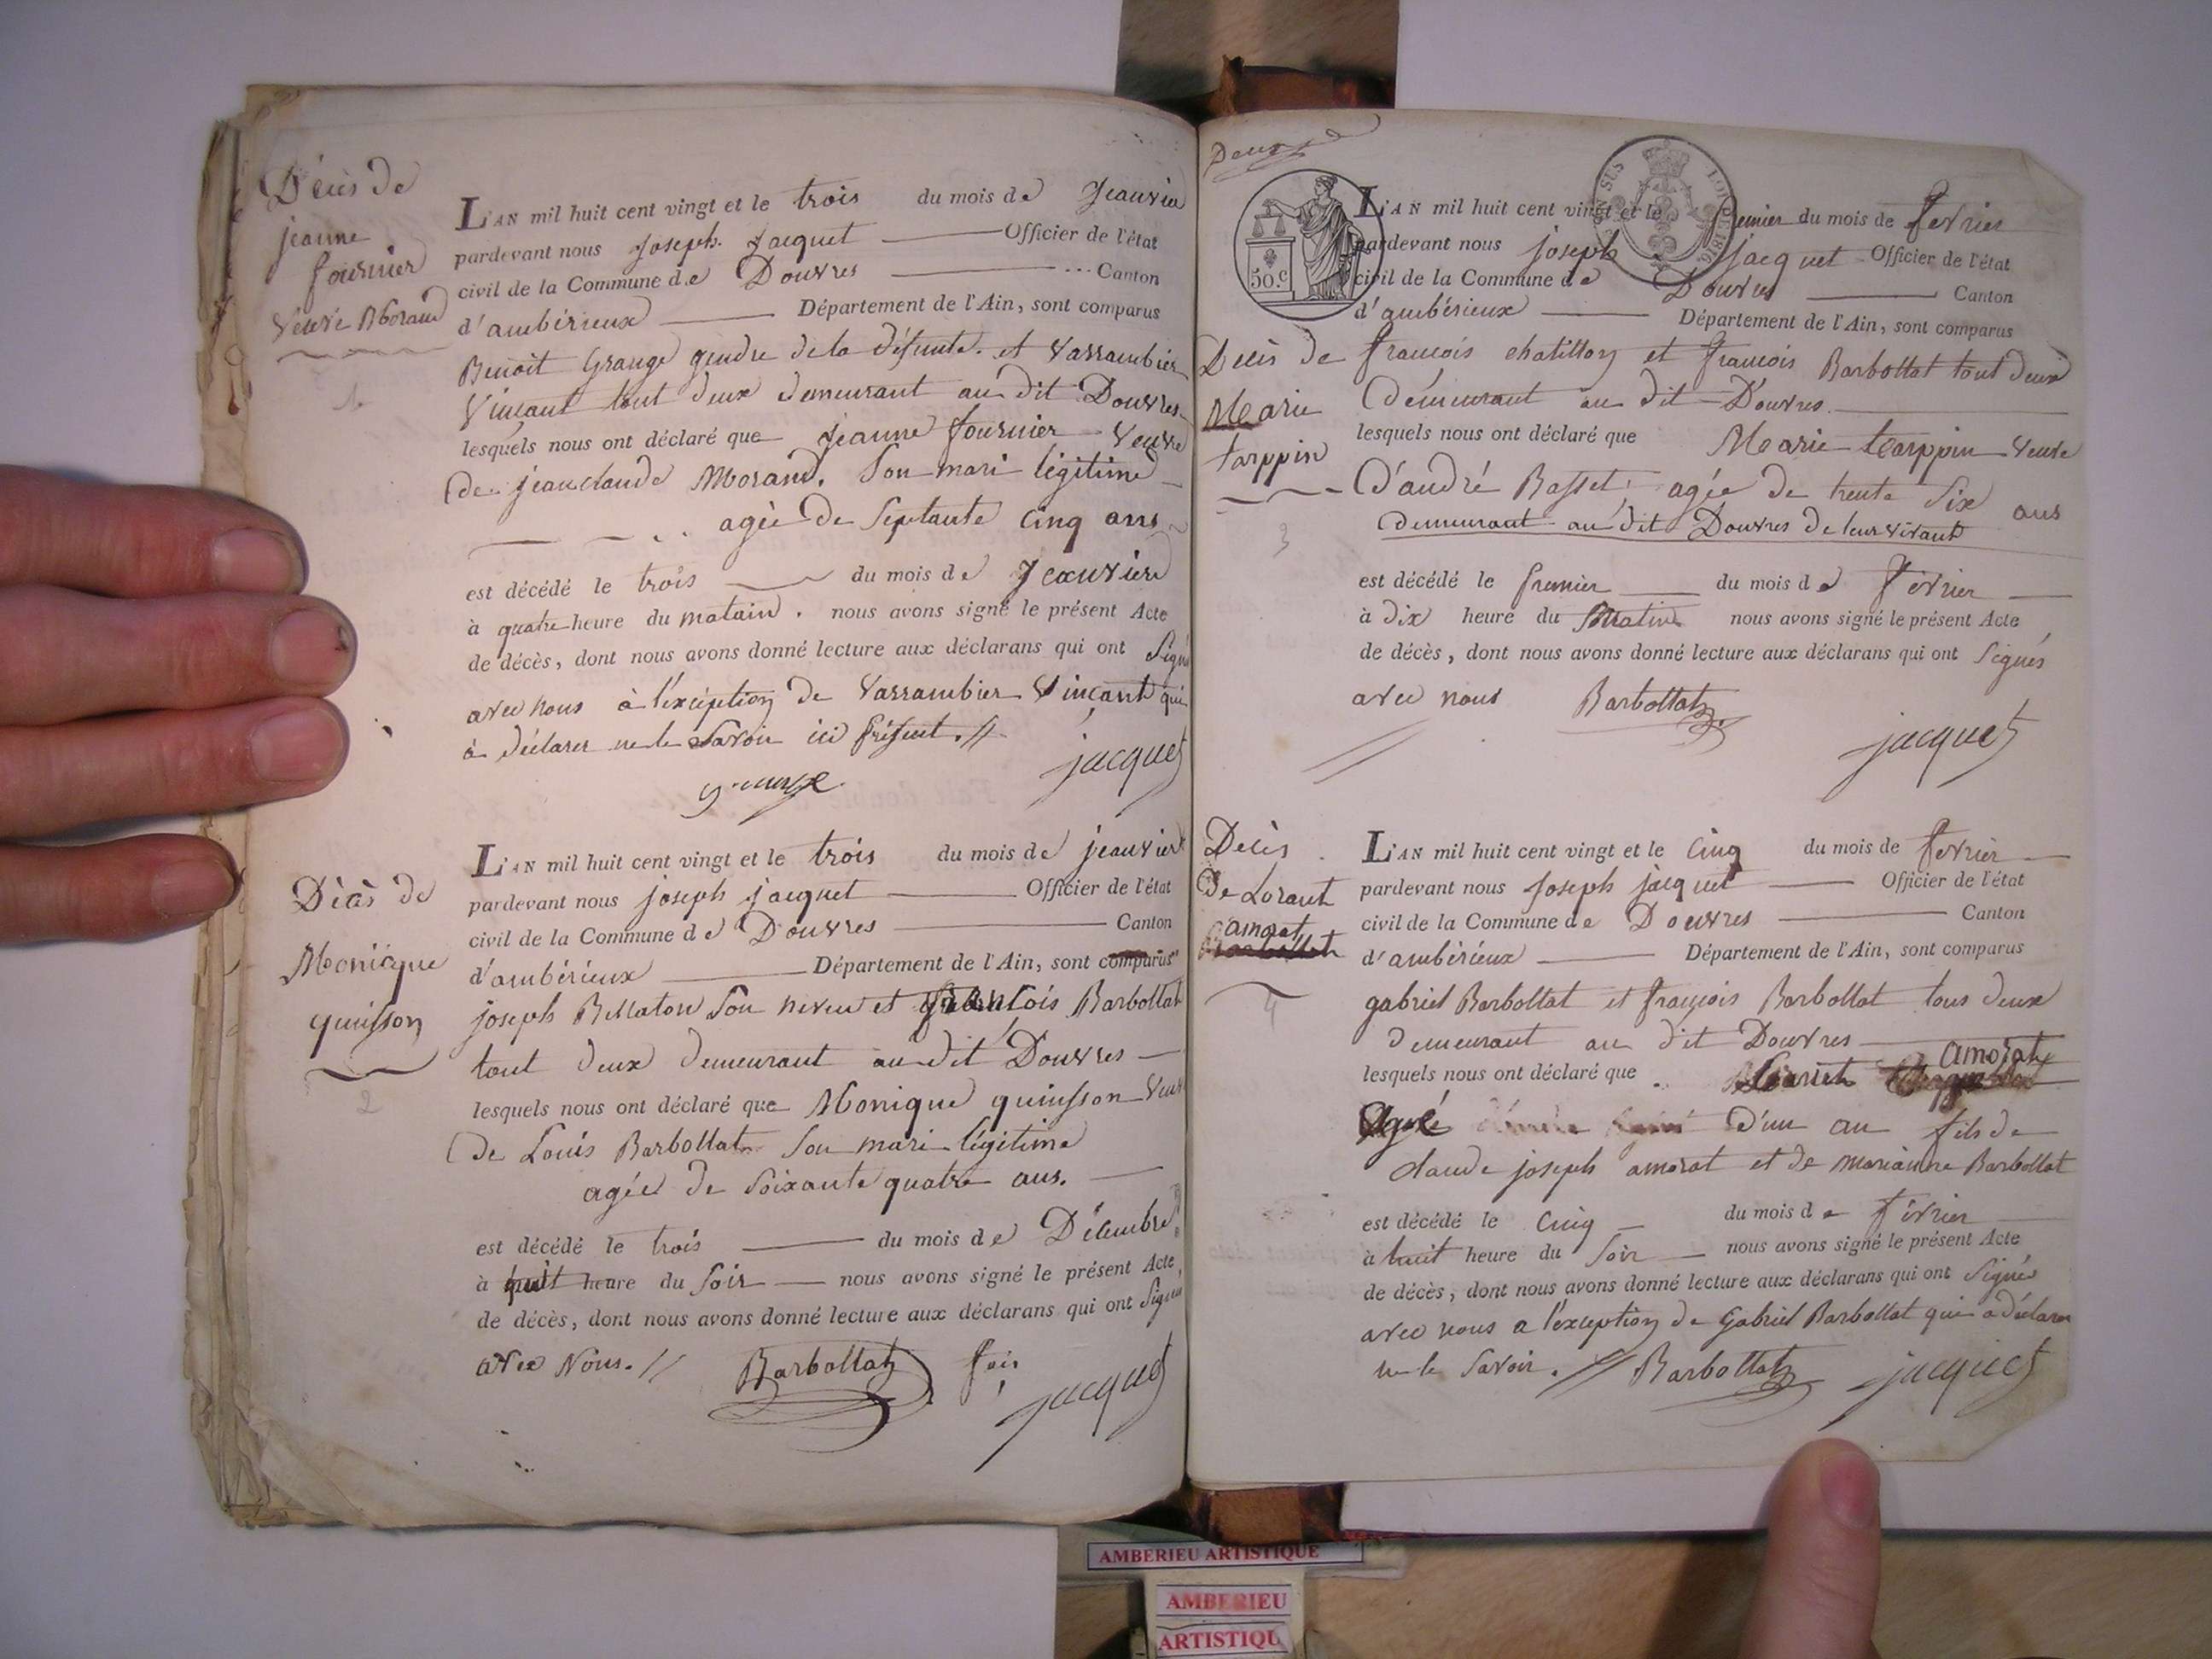 Décès de
jeanne
fournier
Veuve Morand
1
L'AN mil huit cent vingt et le trois du mois de Jeanvier
pardevant nous Joseph Jacquet Officier de l'état
civil de la Commune de Douvres Canton
d'ambérieux Département de l'Ain, sont comparus
Benoit Grange gendre de la défunte. et Vassambier
Vinçant tout deux demeurant au dit Douvres
lesquels nous ont déclaré que Jeanne fournier Veuve
de jeanclaude Morand. Son mari légitime
agée de Septante Cinq ans
est décédé le trois du mois de Jeanvier
à quatre heure du matain. nous avons signé le présent Acte
de décès, dont nous avons donné lecture aux déclarans qui ont Signé
avec nous à l'exception de Vassambier Vinçant qui
à déclarer ne le Savoir ici présent. //
jacquet
Décès de
Monique
quinsson
2
L'AN mil huit cent vingt et le trois du mois de jeanvier
pardevant nous joseph jacquet Officier de l'état
civil de la Commune de Douvres Canton
d'ambérieux Département de l'Ain, sont comparus
joseph Bellaton Son neveu et francois Barbollat
tout deux demeurant au dit Douvres
lesquels nous ont déclaré que Monique quinsson
de Louis Barbollat Son mari légitime
agée de Soixante quatre ans.
est décédé le trois du mois de Décembre
à huit heure du Soir nous avons signé le présent Acte,
de décès, dont nous avons donné lecture aux déclarans qui ont Signés
avec Nous. // Barbollat
jacquet
Deux
50.c
L'AN mil huit cent vingt et le premier du mois de fevrier
pardevant nous joseph jacquet Officier de l'état
civil de la Commune de Douvres Canton
d'ambérieux Département de l'Ain, sont comparus
Décès de
Marie
tarppin
3
francois chatillon et francois Barbollat tout deux
Demeurant au dit Douvres
lesquels nous ont déclaré que Marie tarppin Veuve
D'andré Basset agée de trente Six ans
demeurant au dit Douvres de leur vivant
est décédé le premier du mois de fevrier
à Dix heure du Matin nous avons signé le présent Acte
de décès, dont nous avons donné lecture aux déclarans qui ont Signés
avec nous Barbollat
jacquet
Décès
De Lorant
amorat
4
L'AN mil huit cent vingt et le Cinq du mois de fevrier
pardevant nous Joseph jacquet Officier de l'état
civil de la Commune de Douvres Canton
d'ambérieux Département de l'Ain, sont comparus
gabriel Barbollat et françois Barbollat tous deux
demeurant au dit Douvres
lesquels nous ont déclaré que amorat
Agée D'un an fils de
claude joseph amorat et de marianne Barbollat
est décédé le Cinq du mois de fevrier
à huit heure du Soir nous avons signé le présent Acte
de décès, dont nous avons donné lecture aux déclarans qui ont Signés
avec nous a l'exception de Gabriel Barbollat qui a déclarer
ne le Savoir. // Barbollat jacquet
AMBERIEU ARTISTIQUE
AMBERIEU
ARTISTIQU